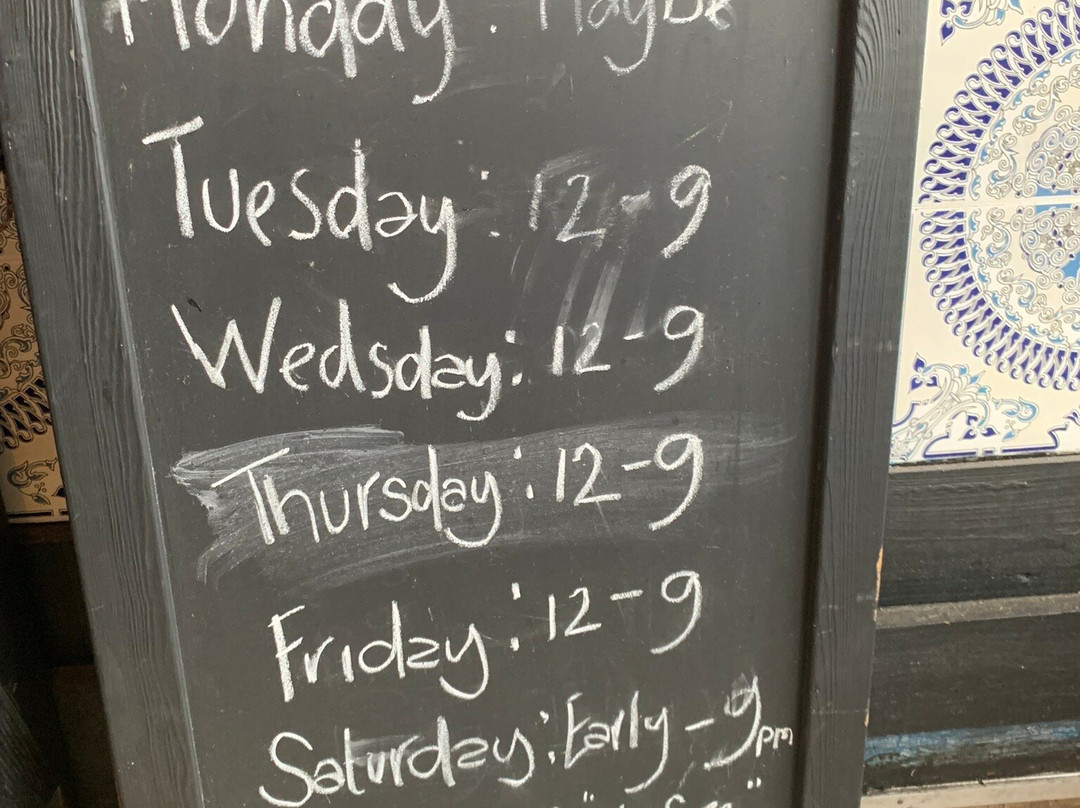 Monday: Maybe
Tuesday: 12-9
Wedsday: 12-9
Thursday: 12-9
Friday: 12-9
Saturday: Early-9pm